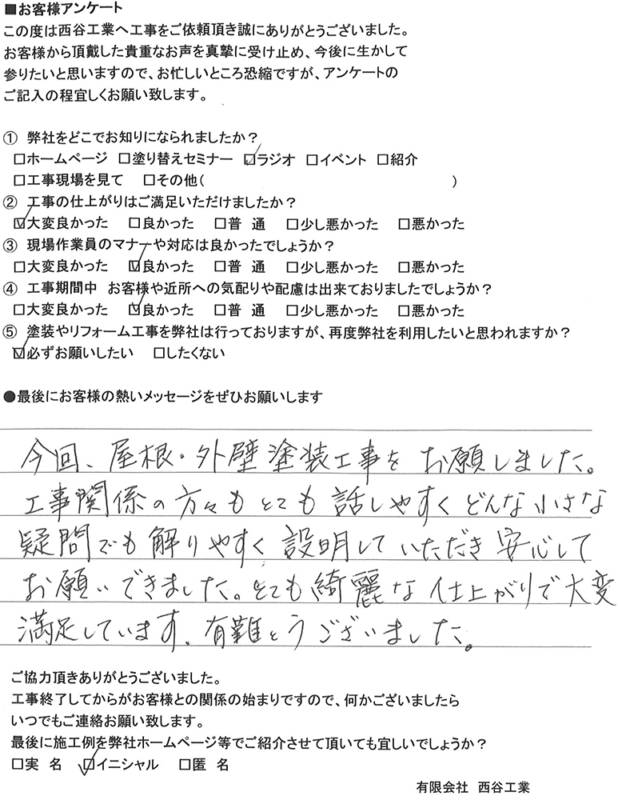 ■お客様アンケート
この度は西谷工業へ工事をご依頼頂き誠にありがとうございました。
お客様から頂戴した貴重なお声を真摯に受け止め、今後に生かして
参りたいと思いますので、お忙しいところ恐縮ですが、アンケートの
ご記入の程宜しくお願い致します。
① 弊社をどこでお知りになられましたか？
□ホームページ □塗り替えセミナー ☑ラジオ □イベント □紹介
□工事現場を見て □その他( )
② 工事の仕上がりはご満足いただけましたか？
☑大変良かった □良かった □普 通 □少し悪かった □悪かった
③ 現場作業員のマナーや対応は良かったでしょうか？
□大変良かった ☑良かった □普 通 □少し悪かった □悪かった
④ 工事期間中 お客様や近所への気配りや配慮は出来ておりましたでしょうか？
□大変良かった ☑良かった □普 通 □少し悪かった □悪かった
⑤ 塗装やリフォーム工事を弊社は行っておりますが、再度弊社を利用したいと思われますか？
☑必ずお願いしたい □したくない
●最後にお客様の熱いメッセージをぜひお願いします
今回、屋根・外壁塗装工事をお願しました。
工事関係の方々もとても話しやすくどんな小さな
疑問でも解りやすく設明していただき安心して
お願いできました。とても綺麗な仕上がりで大変
満足しています、有難とうございました。
ご協力頂きありがとうございました。
工事終了してからがお客様との関係の始まりですので、何かございましたら
いつでもご連絡お願い致します。
最後に施工例を弊社ホームページ等でご紹介させて頂いても宜しいでしょうか？
□実 名 ☑イニシャル □匿 名
有限会社 西谷工業